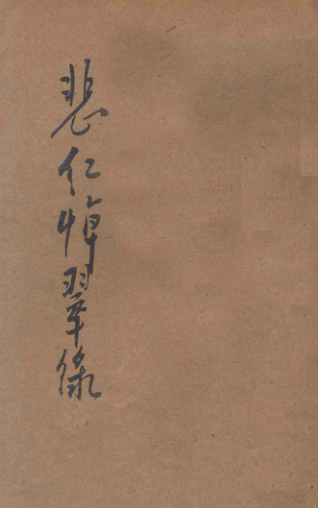 悲仁悼翠録